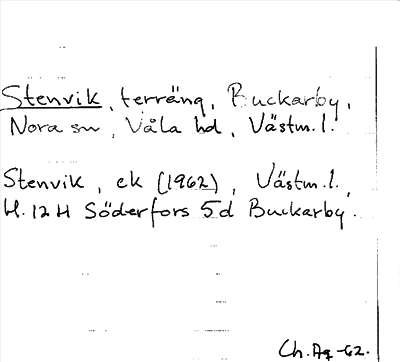 Stenvik, terräng, Buckarby,
Nora sn, Våla hd, Västm.l.
Stenvik, ek (1962), Västm.l.,
H. 12 H Söderfors 5d Buckarby.
Ch. Ag -62.